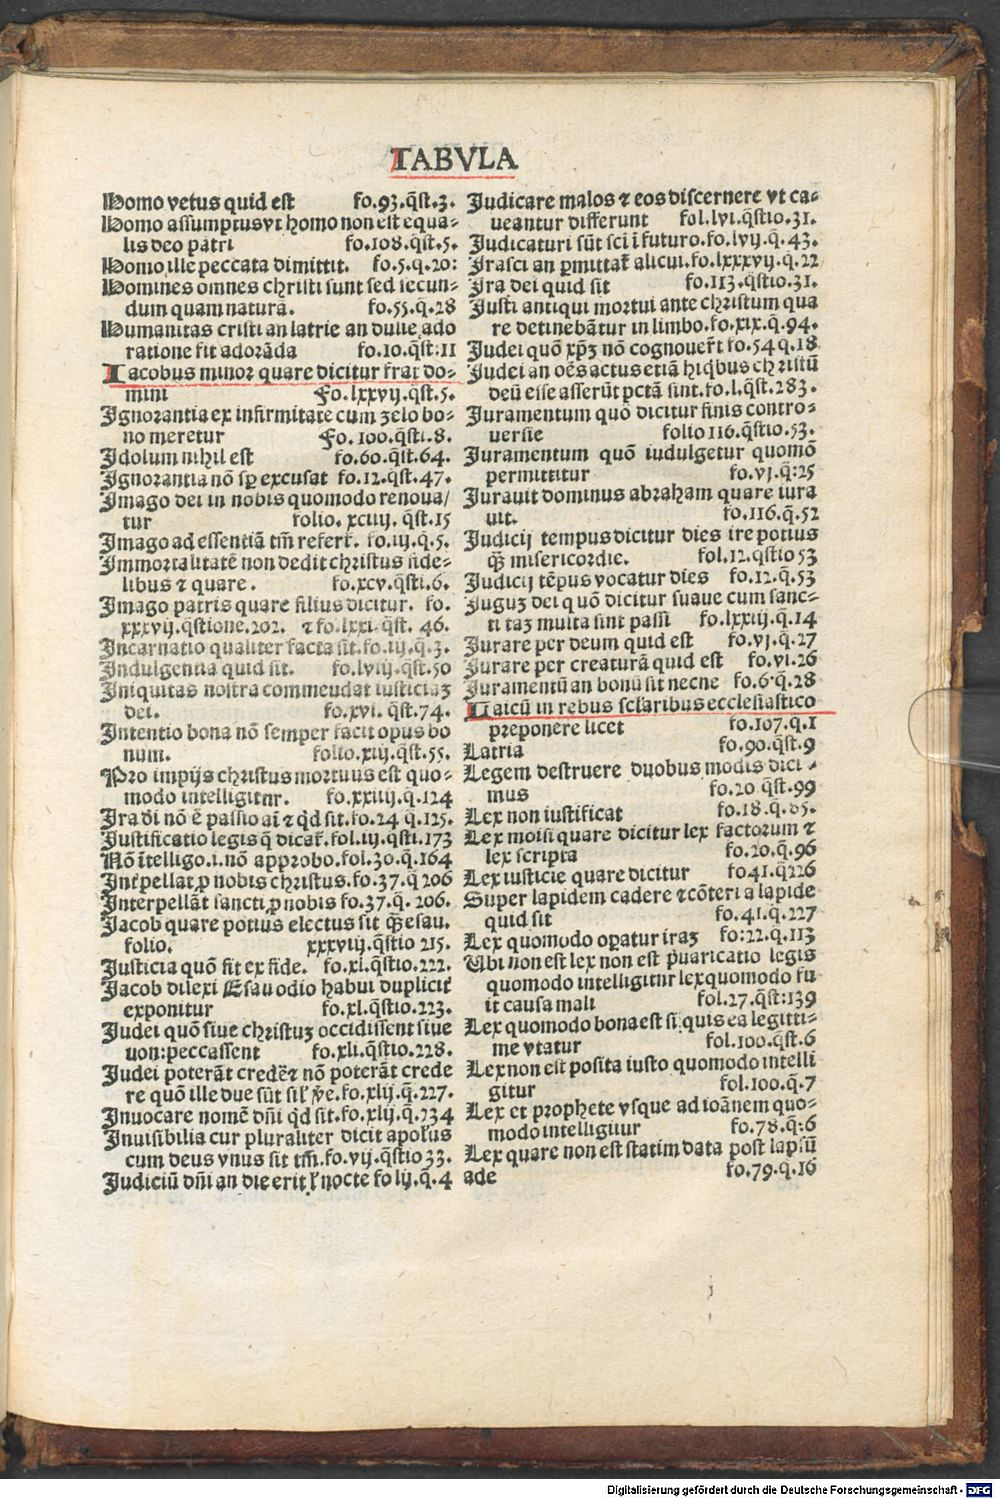 TABVLA
Homo vetus quid est fo.93.q̃st.3.
Homo assumptus vt homo non est equa-
lis deo patri fo.108.q̃st.5.
Homo ille peccata dimittit. fo.5.q.20:
Homines omnes christi sunt sed secun-
dum quam natura. fo.55.q.28
Humanitas cristi an latrie an dulie ado
ratione sit adorãda fo.10.q̃st:11
Iacobus minor quare dicitur frat̃ do-
mini Fo.lxxvij.q̃st.5.
Ignorantia ex infirmitate cum zelo bo-
no meretur Fo.100.q̃sti.8.
Idolum nihil est fo.60.q̃st.64.
Ignorantia nõ sp̱ excusat fo.12.q̃st.47.
Imago dei in nobis quomodo renoua/
tur folio.xciiij. q̃st.15
Imago ad essentiã tm̃ refert̃. fo.ij.q̃.5.
Immortalitatẽ non dedit christus fide-
libus ⁊ quare. fo.xcv.q̃sti.6.
Imago patris quare filius dicitur. fo.
xxxvij.q̃stione.202. ⁊ fo.lxxi.q̃st. 46.
Incarnatio qualiter facta sit.fo.iij.q̃.3.
Indulgentia quid sit. fo.lviij.q̃st.50
Iniquitas nostra commeudat iusticiaȝ
dei. fo.xvi. q̃st.74.
Intentio bona nõ semper facit opus bo
num. folio.xiij.q̃st.55.
Pro impijs christus mortuus est quo-
modo intelligitnr. fo.xxiiij.q.124
Ira di nõ ẽ passio ai ⁊ qd̃ sit.fo.24 q̃.125.
Justificatio legis q̃ dicat̃.fol.iij.q̃sti.173
Nõ ĩtelligo.i.nõ approbo.fol.30.q̃.164
Int̃pellat ꝓ nobis christus.fo.37.q̃ 206
Interpellãt sancti ꝓ nobis fo.37.q̃. 206.
Jacob quare potius electus sit q̃ȝ esau.
folio. xxxviij.q̃stio 215.
Justicia quõ fit ex fide. fo.xl.q̃stio.222.
Jacob dilexi Esau odio habui duplicit̃
exponitur fo.xl.q̃stio.223.
Judei quõ siue christuȝ occidissent siue
uon:peccassent fo.xli.q̃stio.228.
Judei poterãt credẽ ⁊ nõ poterãt crede
re quõ ille due sũt sil' ṽe.fo.xlij.q̃.227.
Inuocare nomẽ dñi qd̃ sit.fo.xlij.q̃.234
Inuisibilia cur pluraliter dicit apol'us
cum deus vnus sit tm̃.fo.vij.q̃stio 33.
Judiciũ dñi an die erit l' nocte fo lij.q̃.4
Judicare malos ⁊ eos discernere vt ca-
ueantur differunt fol.lvi.q̃stio.31.
Judicaturi sũt sci ĩ futuro.fo.lvij.q̃.43.
Irasci an ꝑmittat̃ alicui.fo.lxxxvij.q̃.22
Ira dei quid sit fo.113.q̃stio.31.
Justi antiqui mortui ante christum qua
re detinebãtur in limbo.fo.xix.q̃.94.
Judei quõ xp̃ȝ nõ cognouer̃t fo.54 q̃.18
Judei an oẽs actus etiã hiq̃bus christũ
deũ esse asserũt pctã sint.fo.l.q̃st.283.
Juramentum quõ dicitur finis contro-
uersie folio 116.q̃stio.53.
Juramentum quõ iudulgetur quomõ
permittitur fo.vj.q̃:25
Jurauit dominus abraham quare iura
uit. fo.116.q̃.52
Judicij tempus dicitur dies ire potius
q̃ȝ misericordie. fol.12.q̃stio 53
Judicij tẽpus vocatur dies fo.12.q̃.53
Juguȝ dei quõ dicitur suaue cum sanc-
ti taȝ multa sint passi fo.lxxiij.q̃.14
Jurare per deum quid est fo.vj.q̃.27
Jurare per creaturã quid est fo.vi.26
Juramentũ an bonũ sit necne fo.6.q̃.28
Laicũ in rebus sclaribus ecclesiastico
preponere licet fo.107.q.1
Latria fo.90.q̃st.9
Legem destruere duobus modis dici-
mus fo.20 q̃st.99
Lex non iustificat fo.18.q.85.
Lex moisi quare dicitur lex factorum ⁊
lex scripta fo.20.q̃.96
Lex iusticie quare dicitur fo41.q̃226
Super lapidem cadere ⁊ cõteri a lapide
quid sit fo.41.q.227
Lex quomodo opatur iraȝ fo:22.q.113
Ubi non est lex non est p̃uaricatio legis
quomodo intelligitnr lex quomodo fu
it causa mali fol.27.q̃st:139
Lex quomodo bona est si quis ea legitti-
me vtatur fol.100.q̃st.6
Lex non est posita iusto quomodo intelli
gitur fol.100.q̃.7
Lex et prophete vsque ad ioãnem quo-
modo intelligitur fo.78.q̃:6
Lex quare non est statim data post lapsũ
ade fo.79.q.16
Digitalisierung gefördert durch die Deutsche Forschungsgemeinschaft - DFG